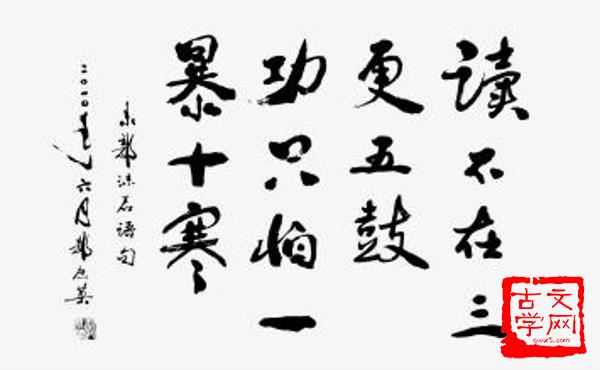 讀不在三
更五鼓
功只怕一
暴十寒
录郭沫若语句
二〇一〇年六月郭
古文
学网
gwx5.com